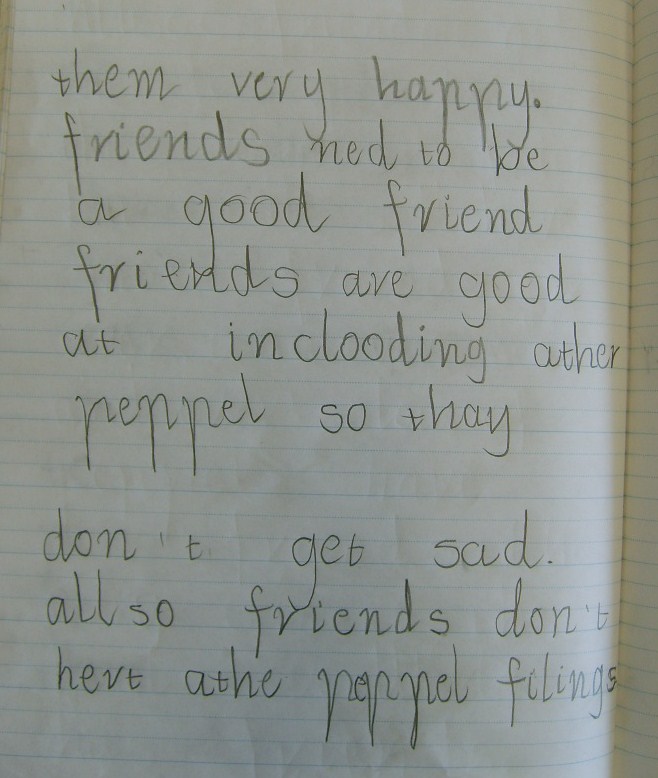 them very happy.
friends ned to be
a good friend
friends are good
at inclooding ather
peppel so thay
don't get sad.
allso friends don't
hert athe peppel filings